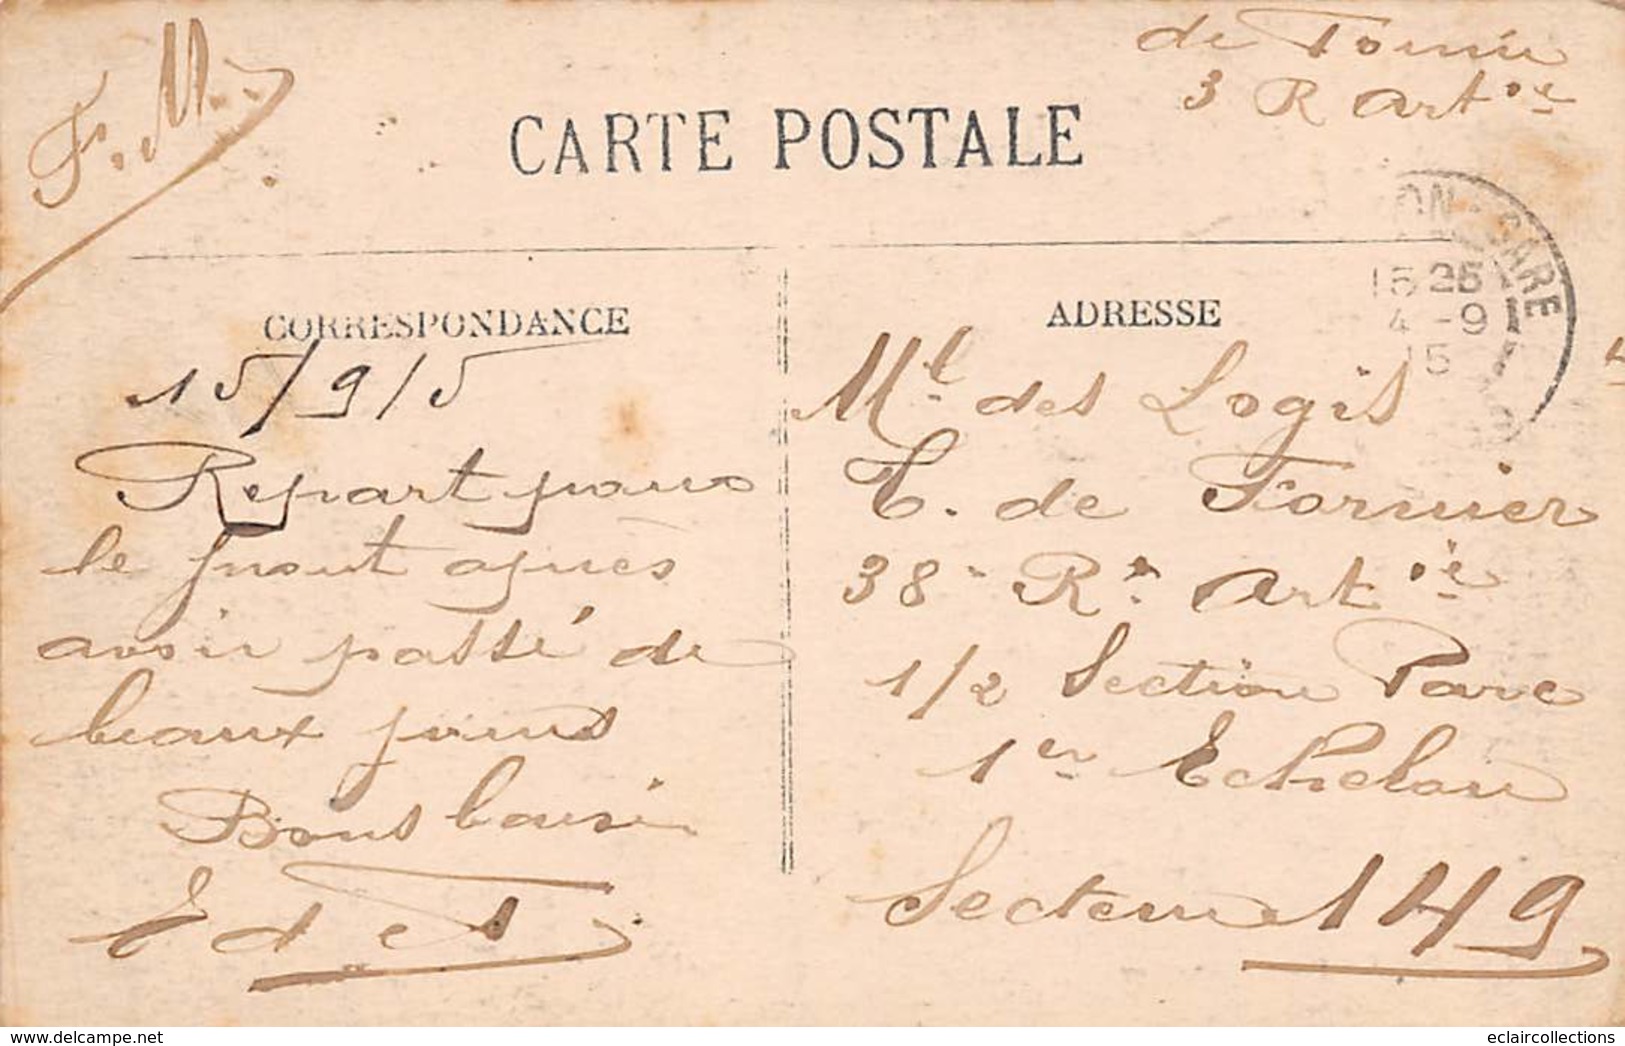 F. M.
de Fornier
3 R Art ie
CARTE POSTALE
ON - GARE
15 25
4 - 9
15
CORRESPONDANCE
ADRESSE
15/9/5
Repart pour
le front après
avoir passé de
beaux jours
Bons baisers
E d F
Ml. des Logis
E. de Fornier
38 R. Art ie
1/2 Section Parc
1er Echelon
Secteur 149
www.delcampe.net
eclaircollections